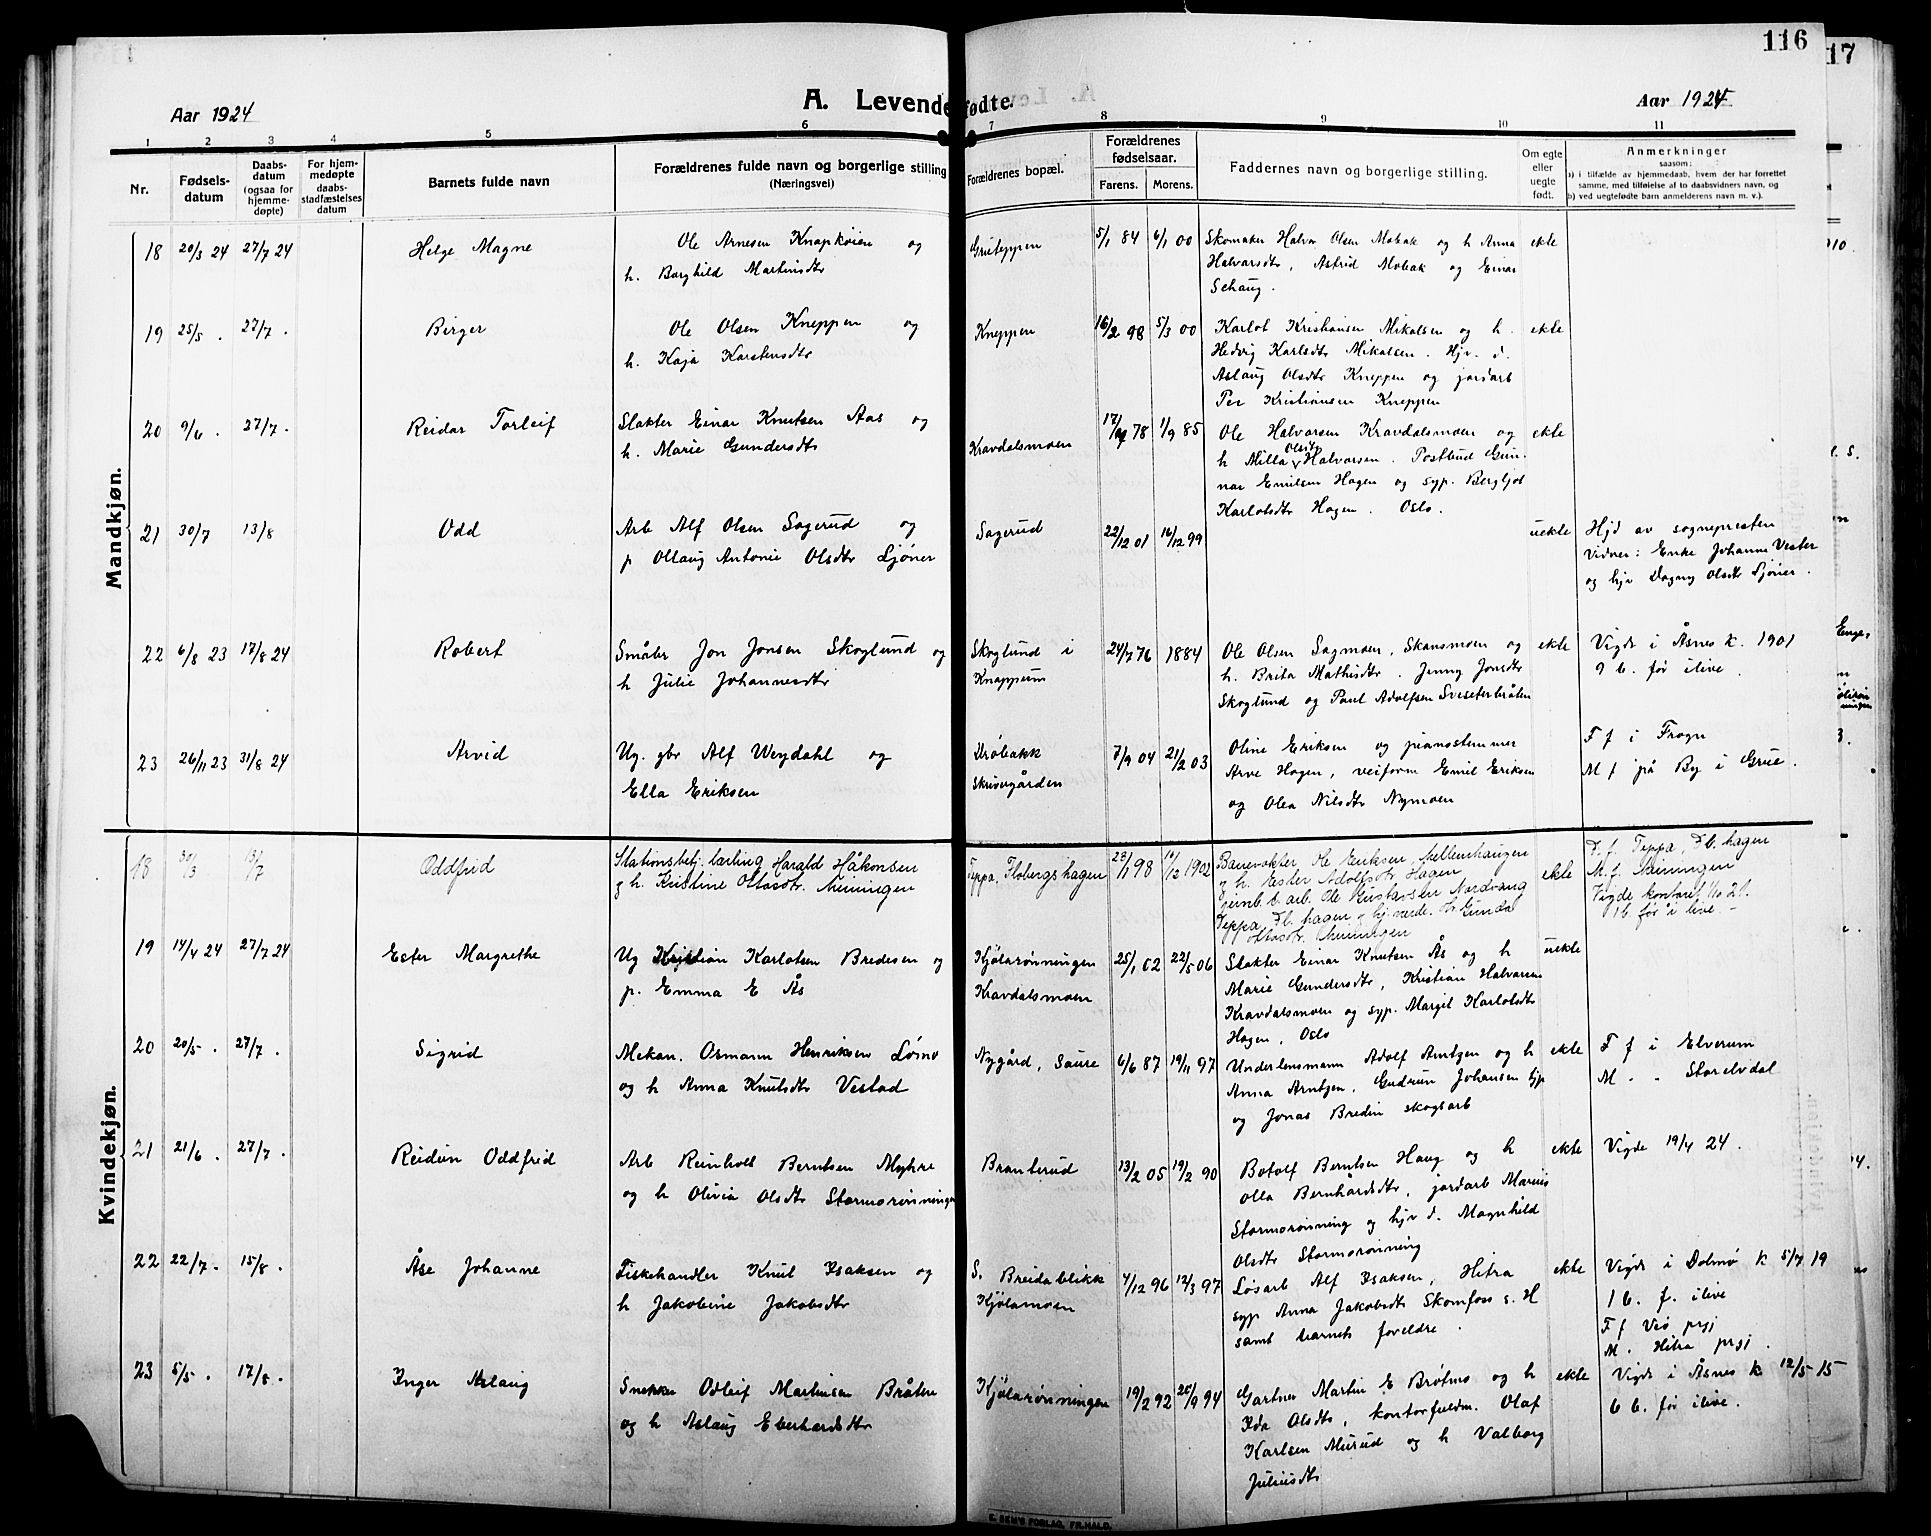 116
17
Aar 1924
A. Levendefødte.
Aar 1924
1 2 3 4 5 6 7 8 9 10 11
Nr.
Fødsels-
datum
Daabs-
datum
(ogsaa for
hjemme-
døpte)
For hjem-
medøpte
daabs-
stadfæstelses
datum
Barnets fulde navn
Forældrenes fulde navn og borgerlige stilling
(Næringsvei)
Forældrenes bopæl.
Forældrenes
fødselsaar.
Farens. Morens.
Faddernes navn og borgerlige stilling.
Om egte
eller
uegte
født.
Anmerkninger
saasom:
a) i tilfælde av hjemmedaab, hvem der har forrettet
samme, med tilføielse af to daabsvidners navn, og
b) ved uegtefødte barn anmelderens navn m. v.).
Mandkjøn.
18 20/3 24 27/7 24 Helge Magne
Ole Arnesen Knapkøien og
h. Borghild Martinsdtr
Grueteppen
5/1 84 6/1 00
Skomaker Halvor Olsen Mobak og h Anna
Halvarsdtr, Astrid Mobak og Einar
Schaug.
ekte
19 25/5 . 27/7 . Birger
Ole Olsen Kneppen og
h. Kaja Karstensdtr
Kneppen
16/2 98 5/3 00
Karlot Kristiansen Mikalsen og h.
Hedvig Karlsdtr Mikalsen. Hjv. d.
Aslaug Olsdtr Kneppen og jordarb
Per Kristiansen Kneppen
ekte
20 9/6 . 27/7 . Reidar Torleif
Slakter Einar Knutsen Aas og
h. Marie Gundersdtr
Kravdalsmoen
78 1/9 85
Ole Halvarsen Kravdalsmoen og
h Milla Olsdtr Halvarsen. Postbud Gun-
nar Emilsen Hagen og syp. Bergljot
Karlotsdtr Hagen. Oslo.
ekte
21 30/7 13/8 Odd
Arb Alf Olsen Sagerud og
p Ollaug Antonie Olsdtr Sjöner
Sagerud
22/12 01 16/12 99
uekte
Hjd av sognepresten
vidner: Enke Johanne Vester
og hjv Dagny Olsdtr Sjöner.
22 6/8 23 17/8 24 Robert
Småbr Jon Jonsen Skoglund og
h Julie Johannesdtr
Skoglund i
Knappum
24/7 76 1884
Ole Olsen Sagmoen, Skansmoen og
h. Brita Mathisdtr. Jenny Jonsdtr
Skoglund og Paul Adolfsen Sveseterbråten
ekte
Vigde i Åsnes k. 1901
9 b. før ilive.
23 26/11 23 31/8 24 Arvid
Ug. gbr Alf Weydahl og
Ella Eriksen
Drøbakk
Skrivergården
7/9 04 21/2 03
Oline Eriksen og pianostemmer
Arve Hagen, veiform Emil Eriksen
og Olea Nilsdtr Nymoen
F f i Frogn
M f på By i Grue.
Kvindekjøn.
18 30/3 13/7 Oddfrid
Stationsbetj. lærling Harald Håkonsen
g h. Kristine Ottosdtr.
Teppa, Flobergshagen
28/1 98 10/12 1902
Banevokter Ole Eriksen Mellemhaugen
g h. Ester Adolfsdtr Hagen
jernb. b. arb. Ole Gustavsen Nordvang
Teppa Fl. hagen
Ottosdtr.
ekte
F. f. Teppa, Fl. hagen
M. f.
Vigde kontoret
1 b før i live. -
19 14/4 24 27/7 24 Ester Margrethe
Ug Kristian Karlotsen Bredesen og
p. Emma E Ås
Kjølarønningen
Kravdalsmoen
25/1 02 22/5 06
Slakter Einar Knutsen Ås og h
Marie Gundersdtr, Kristian Halvarsen
Kravdalsmoen og syp. Margit Karlotsdtr
Hagen, Oslo
uekte
20 20/5 . 27/7 . Sigrid
Mekan. Osmann Henriksen Lömo
og h Anna Knutsdtr Vestad
Nygård, Saure
6/6 87 19/11 97
Underlensmann Adolf Arntzen og h
Anna Arntzen, Gudrun Johansen hjp
og Jonas Bredin skogsarb
ekte
F f i Elverum
M . . Storelvdal
21 21/6 . 27/7 . Reidun Oddfrid
Arb Reinholt Berntsen Myhre
og h Olivia Olsdtr Stormorønningen
Branterud
13/2 05 19/2 90
Botolf Berntsen Haug og h
Olla Bernhårdsdtr, jordarb Marius
Stormorønning og hjv d. Magnhild
Olsdtr Stormorønning
ekte
Vigde 19/4 24.
22 22/7 . 15/8 . Åse Johanne
Fiskehandler Knut Isaksen og
h Jakobine Jakobsdtr
S. Breidablikk
Kjølamoen
4/12 96 12/3 97
Løsarb Alf Isaksen, Hitra
syp Anna Jakobsdtr Skomfoss s. H
samt barnets foreldre.
ekte
Vigde i Dolmø k 5/7 19
1 b. f. ilive
F f Veø prgj
M. Hitra prgj.
23 5/5 . 17/8 . Inger Aslaug
Snekker Odleif Martinsen Bråten
og h Aslaug Eberhardsdtr
Kjølarønningen
19/2 92 20/9 94
Gartner Martin E Bröfos og h
Ida Olsdtr, kontorfuldm. Olaf
Karlsen Murud og h Valborg
Juliusdtr
ekte
Vigde i Åsnes k 12/5 15
6 b. før ilive.
E. SEM'S FORLAG, FR.HALD.